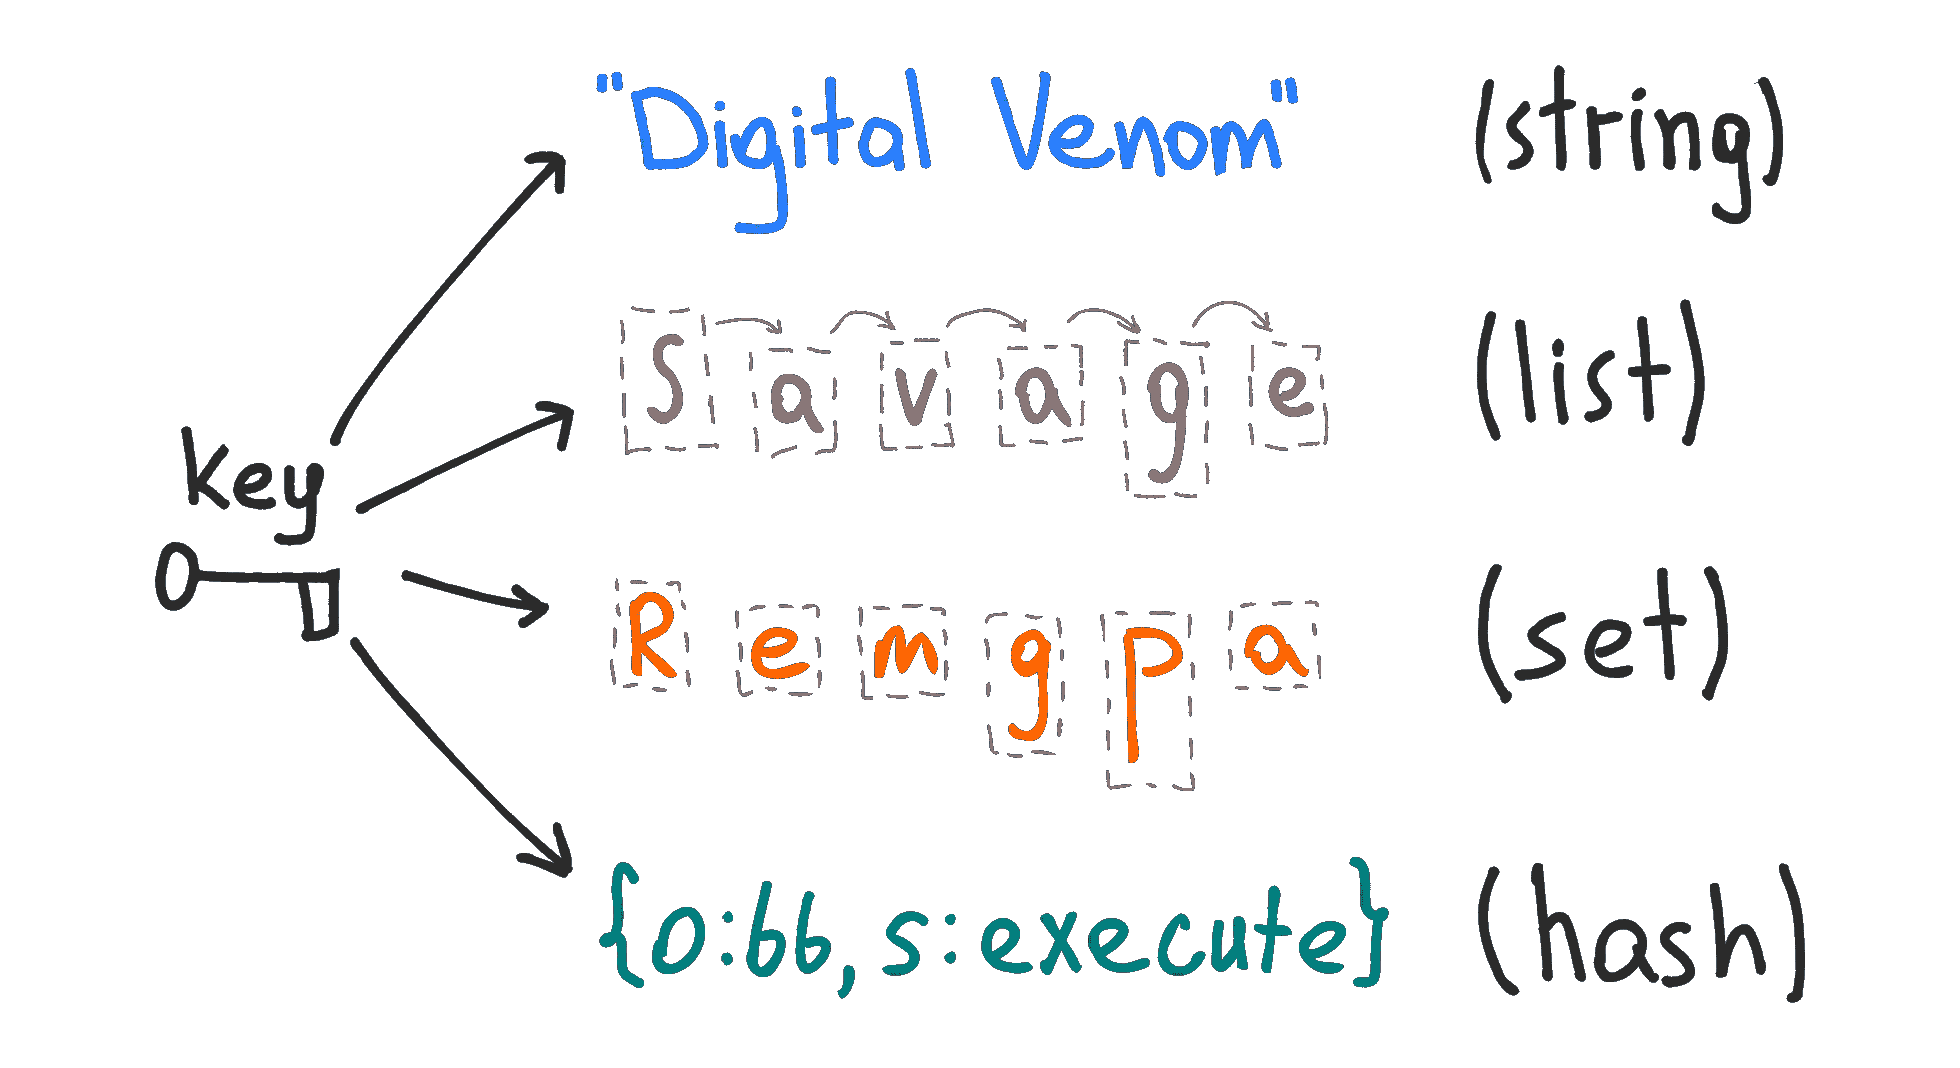 "Digital Venom" (string)
S a v a g e (list)
key
R e m g p a (set)
{0:66, s:execute} (hash)